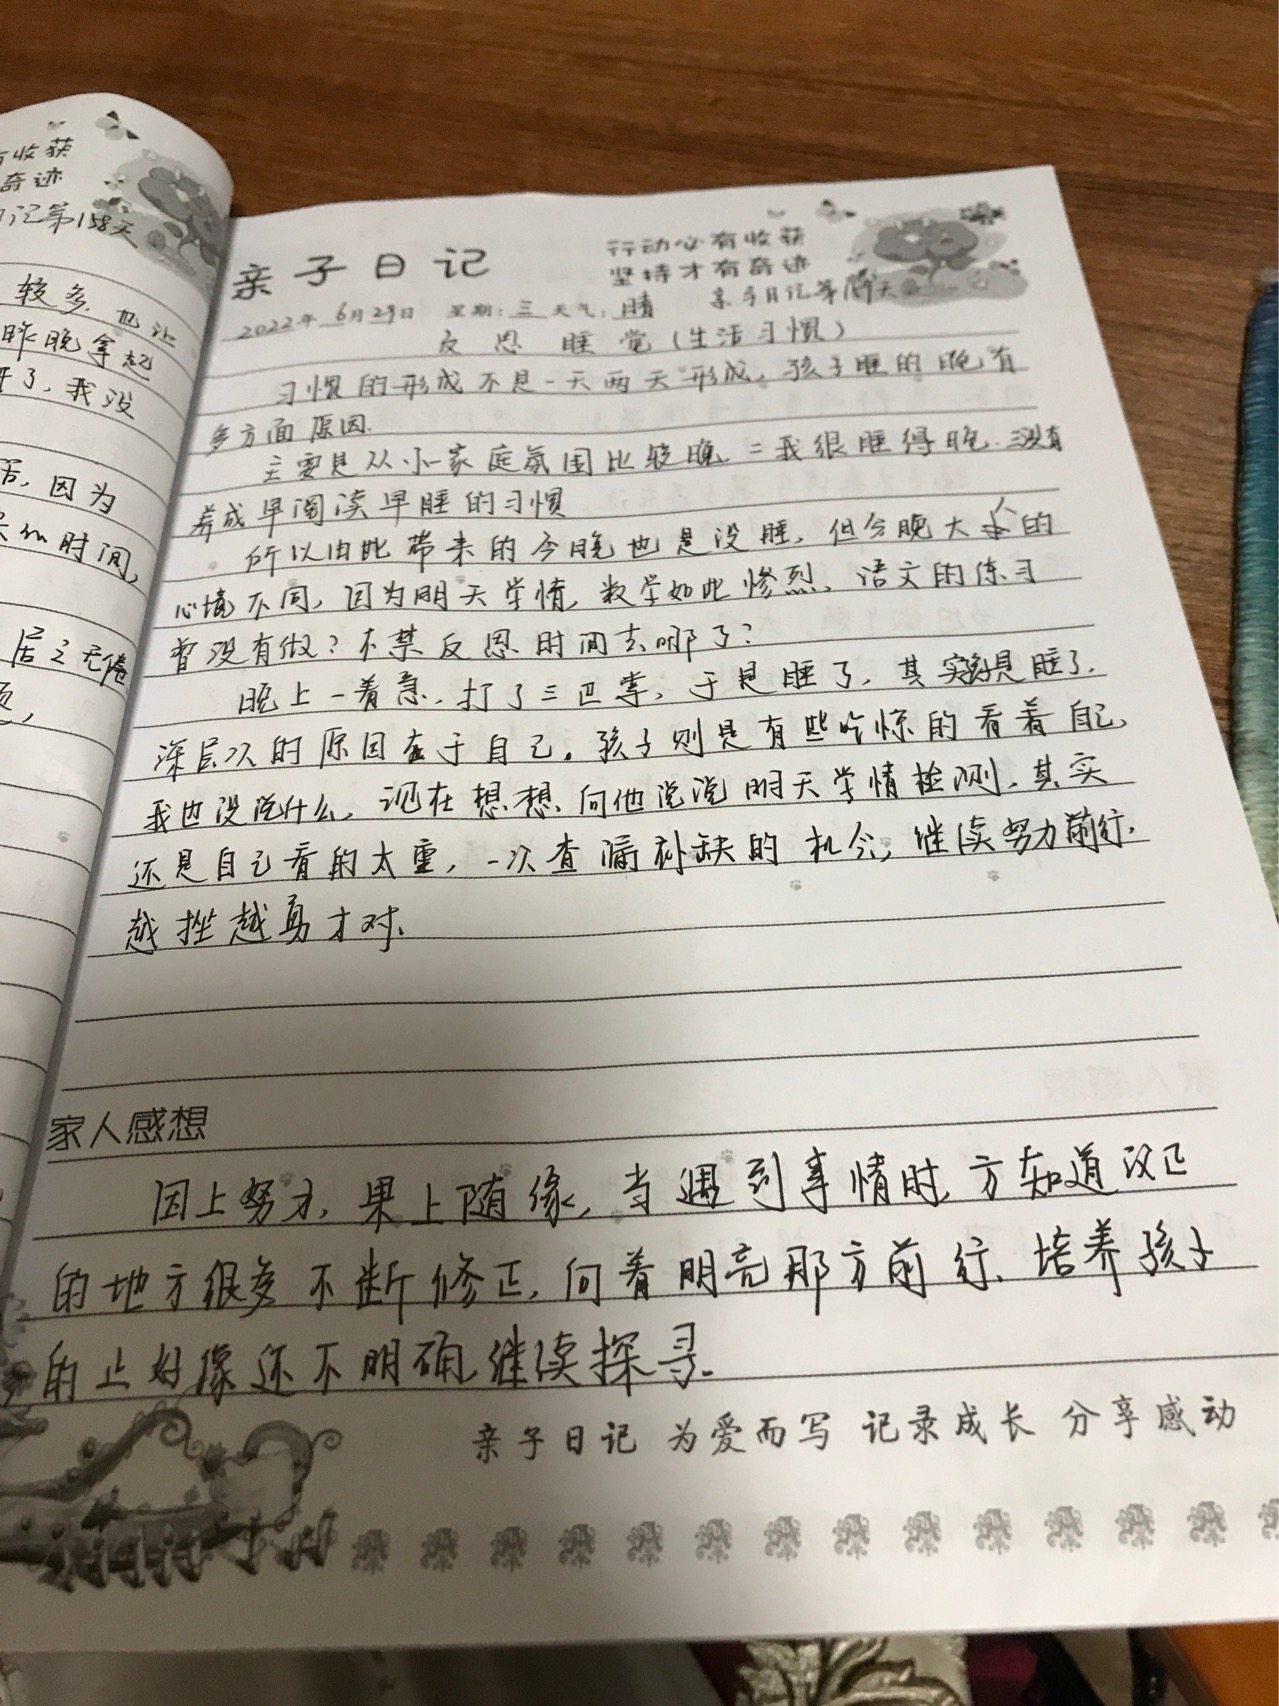 有收获
奇迹
日记第158天
较多,也让
昨晚拿起
开了,我没
因为
时间,
居之无倦
亲子日记
行动必有收获
坚持才有奇迹
亲子日记第 天
2022年 6月29日 星期:三 天气:晴
反思睡觉(生活习惯)
习惯的形成不是一天两天形成,孩子睡的晚有
多方面原因.
主要是从小家庭氛围比较晚.二我很睡得晚.三没有
养成早阅读早睡的习惯
所以由此带来的今晚也是没睡,但今晚大 的
心境不同,因为明天学情,数学如此惨烈,语文的练习
曾没有做?不禁反思时间去哪了?
晚上一着急.打了三巴掌,于是睡了,其实 是睡了.
深层次的原因在于自己。孩子则是有些吃惊的看着自己,
我也没说什么,现在想想.向他说说明天学情检测.其实
还是自己看的太重,一次查漏补缺的机会,继续努力前行.
越挫越勇才对.
家人感想
因上努力,果上随缘,当遇到事情时,方知道改正
的地方很多不断修正,向着明亮那方前行.培养孩子
的 好像还不明确,继续探寻.
亲子日记 为爱而写 记录成长 分享感动